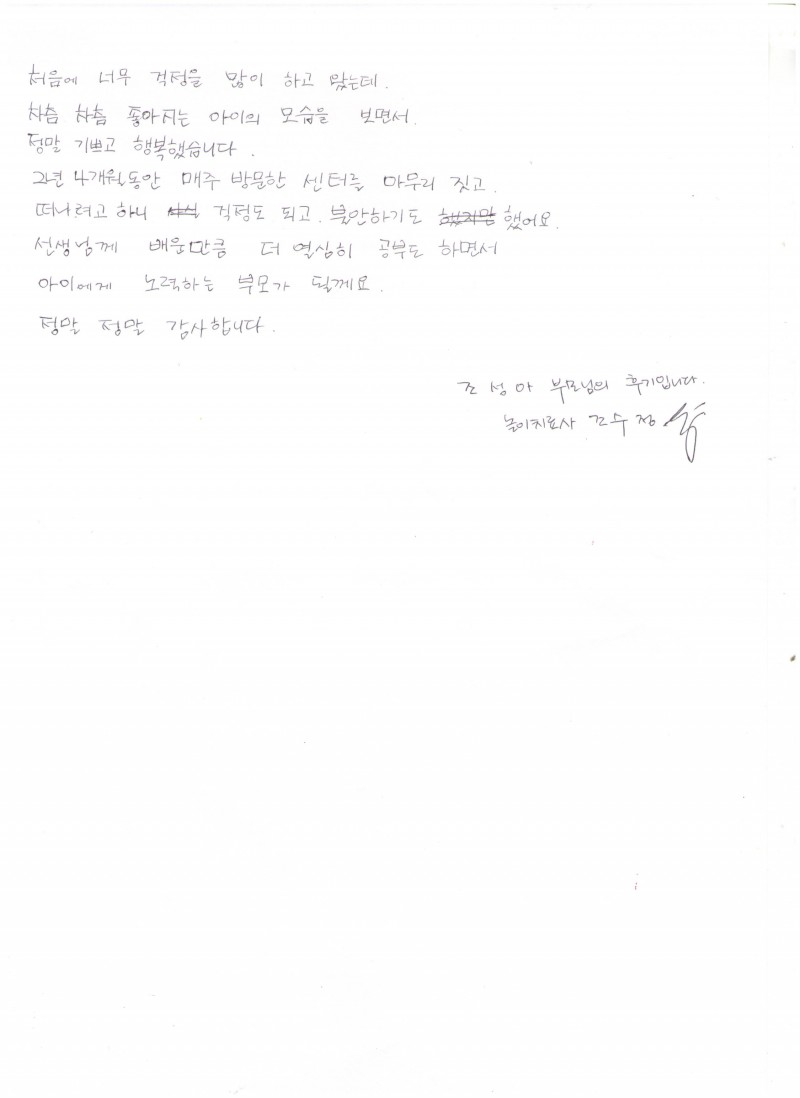 처음에 너무 걱정을 많이 하고 왔는데.
차츰 차츰 좋아지는 아이의 모습을 보면서.
정말 기쁘고 행복했습니다.
2년 4개월동안 매주 방문한 센터를 마무리 짓고.
떠나려고 하니 걱정도 되고. 불안하기도 했지만 했어요.
선생님께 배운만큼 더 열심히 공부도 하면서
아이에게 노력하는 부모가 될께요.
정말 정말 감사합니다.
조성아 부모님의 후기입니다.
놀이치료사 조수정